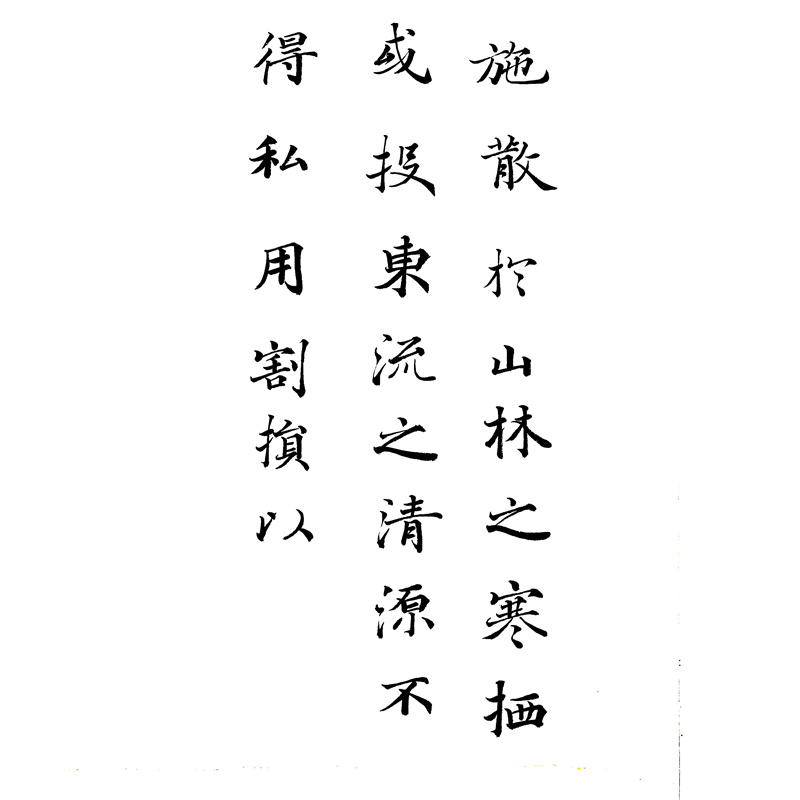 施散於山林之寒栖
或投東流之清源不
得私用割損以